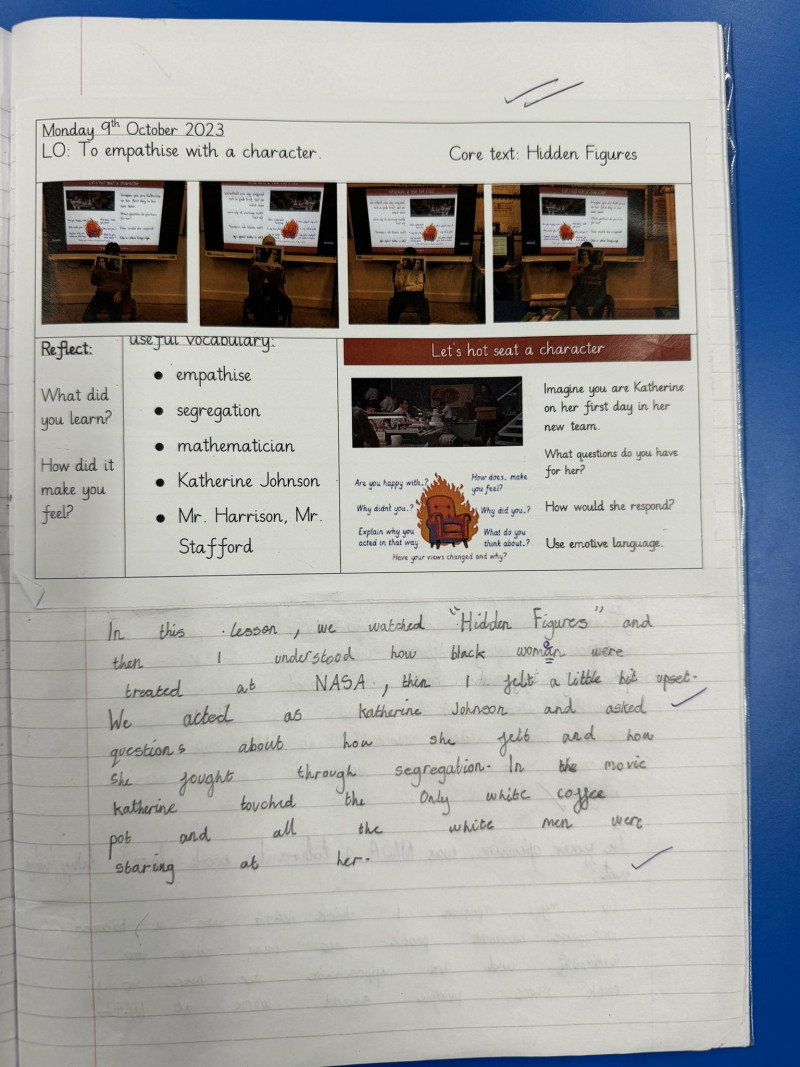 Monday 9th October 2023
LO: To empathise with a character.
Core text: Hidden Figures
Let's hot seat a character
Reflect:
What did
you learn?
How did it
make you
feel?
useful vocabulary:
• empathise
• segregation
• mathematician
• Katherine Johnson
• Mr. Harrison, Mr.
Stafford
Let's hot seat a character
Imagine you are Katherine
on her first day in her
new team.
What questions do you have
for her?
How would she respond?
Use emotive language.
Are you happy with..?
How does.. make
you feel?
Why didn't you..?
Why did you..?
Explain why you
acted in that way
What do you
think about..?
Have your views changed and why?
In this lesson, we watched "Hidden Figures" and
then I understood how black woman were
treated at NASA, then I felt a little bit upset.
We acted as Katherine Johnson and asked
questions about how she felt and how
she fought through segregation. In the movie
Katherine touched the Only white coffee
pot and all the white men were
staring at her.